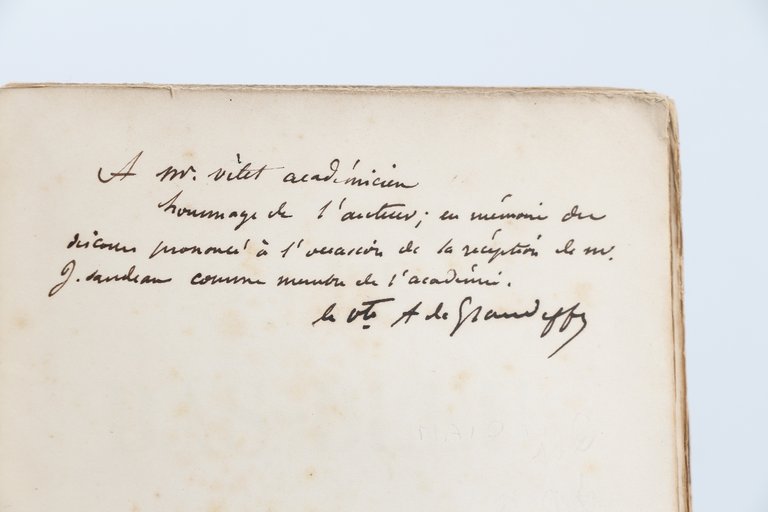 A mr. vitet académicien
hommage de l'auteur; en mémoire du
discours prononcé à l'occasion de la réception de mr.
J. sandeau comme membre de l'académie.
le vte A de Grandeffe